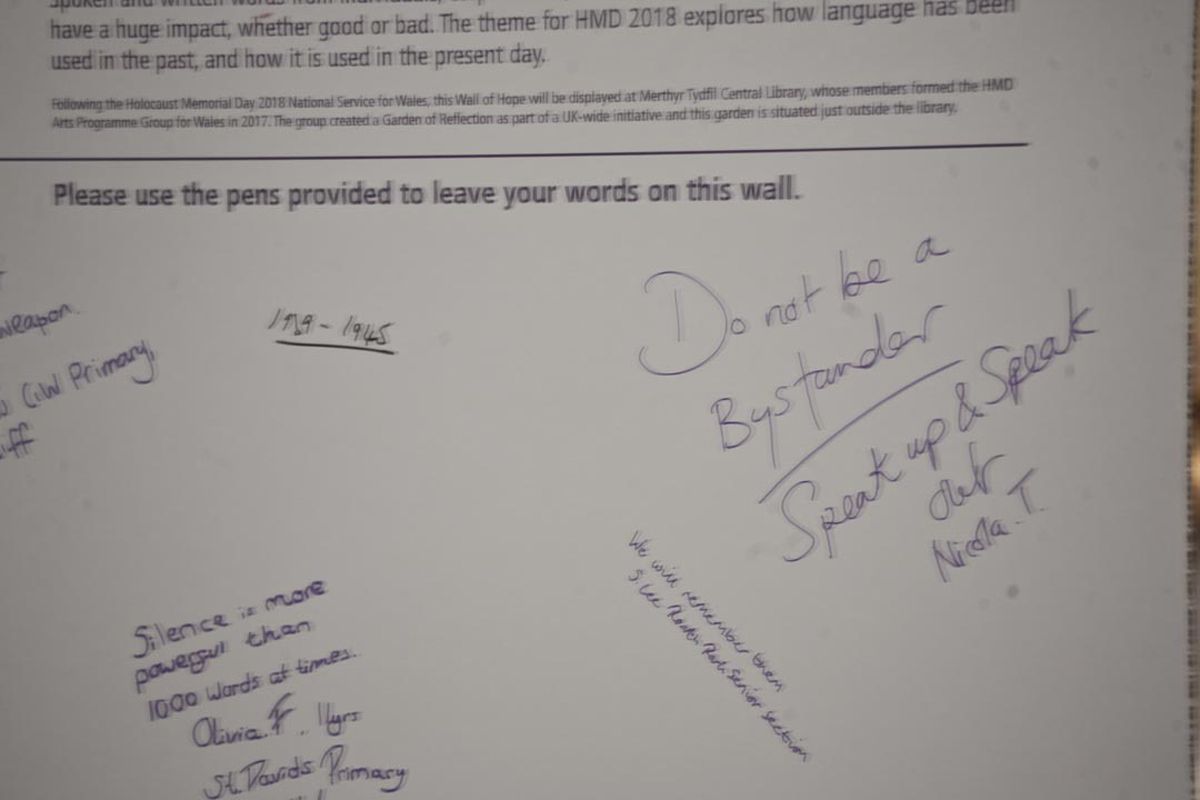 have a huge impact, whether good or bad. The theme for HMD 2018 explores how language has been
used in the past, and how it is used in the present day.
Following the Holocaust Memorial Day 2018 National Service for Wales, this Wall of Hope will be displayed at Merthyr Tydfil Central Library, whose members formed the HMD
Arts Programme Group for Wales in 2017. The group created a Garden of Reflection as part of a UK-wide initiative and this garden is situated just outside the library.
Please use the pens provided to leave your words on this wall.
weapon.
CiW Primary,
iff
1939 - 1945
Do not be a
Bystander
Speak up & Speak
out
Nicola. T.
We will remember them
S. Lee Park Senior Section
Silence is more
powerful than
1000 words at times.
Olivia. F. 11yrs
St. Davids Primary